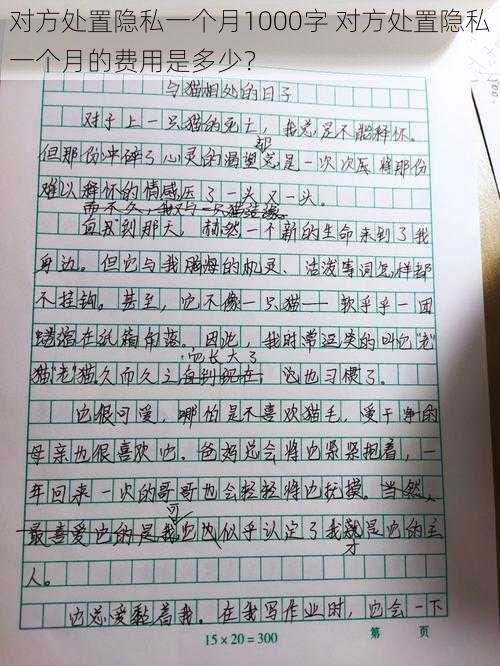 对方处置隐私一个月1000字 对方处置隐私
一个月的费用是多少?
与猫相处的日子
对于上一只猫的死亡，我总是不能释怀。
却
但那份冲碎了心灵的渴望竟是一次次压将那份
难以释怀的情感压了一头又一头。
而不久，我又与一只猫结缘。
直到那天，赫然一个新的生命来到了我
身边。但它与我脑海的机灵、活泼等词怎样都
不挂钩。甚至，它不像一只猫——软乎乎一团
蜷缩在纸箱角落。因此，我时常逗笑的叫它“老”
它长大了
猫“老”猫久而久之直到现在，它也习惯了。
它很可爱，哪怕是不喜欢猫毛，爱干净的
母亲也很喜欢它。爸妈总会将它紧紧抱着，一
年回来一次的哥哥也会轻轻将它抚摸。当然，
可
最喜爱它的是我它也似乎认定了我就是它的主
才
人。
它总爱黏着我。在我写作业时，它会一下
15×20=300
第 页